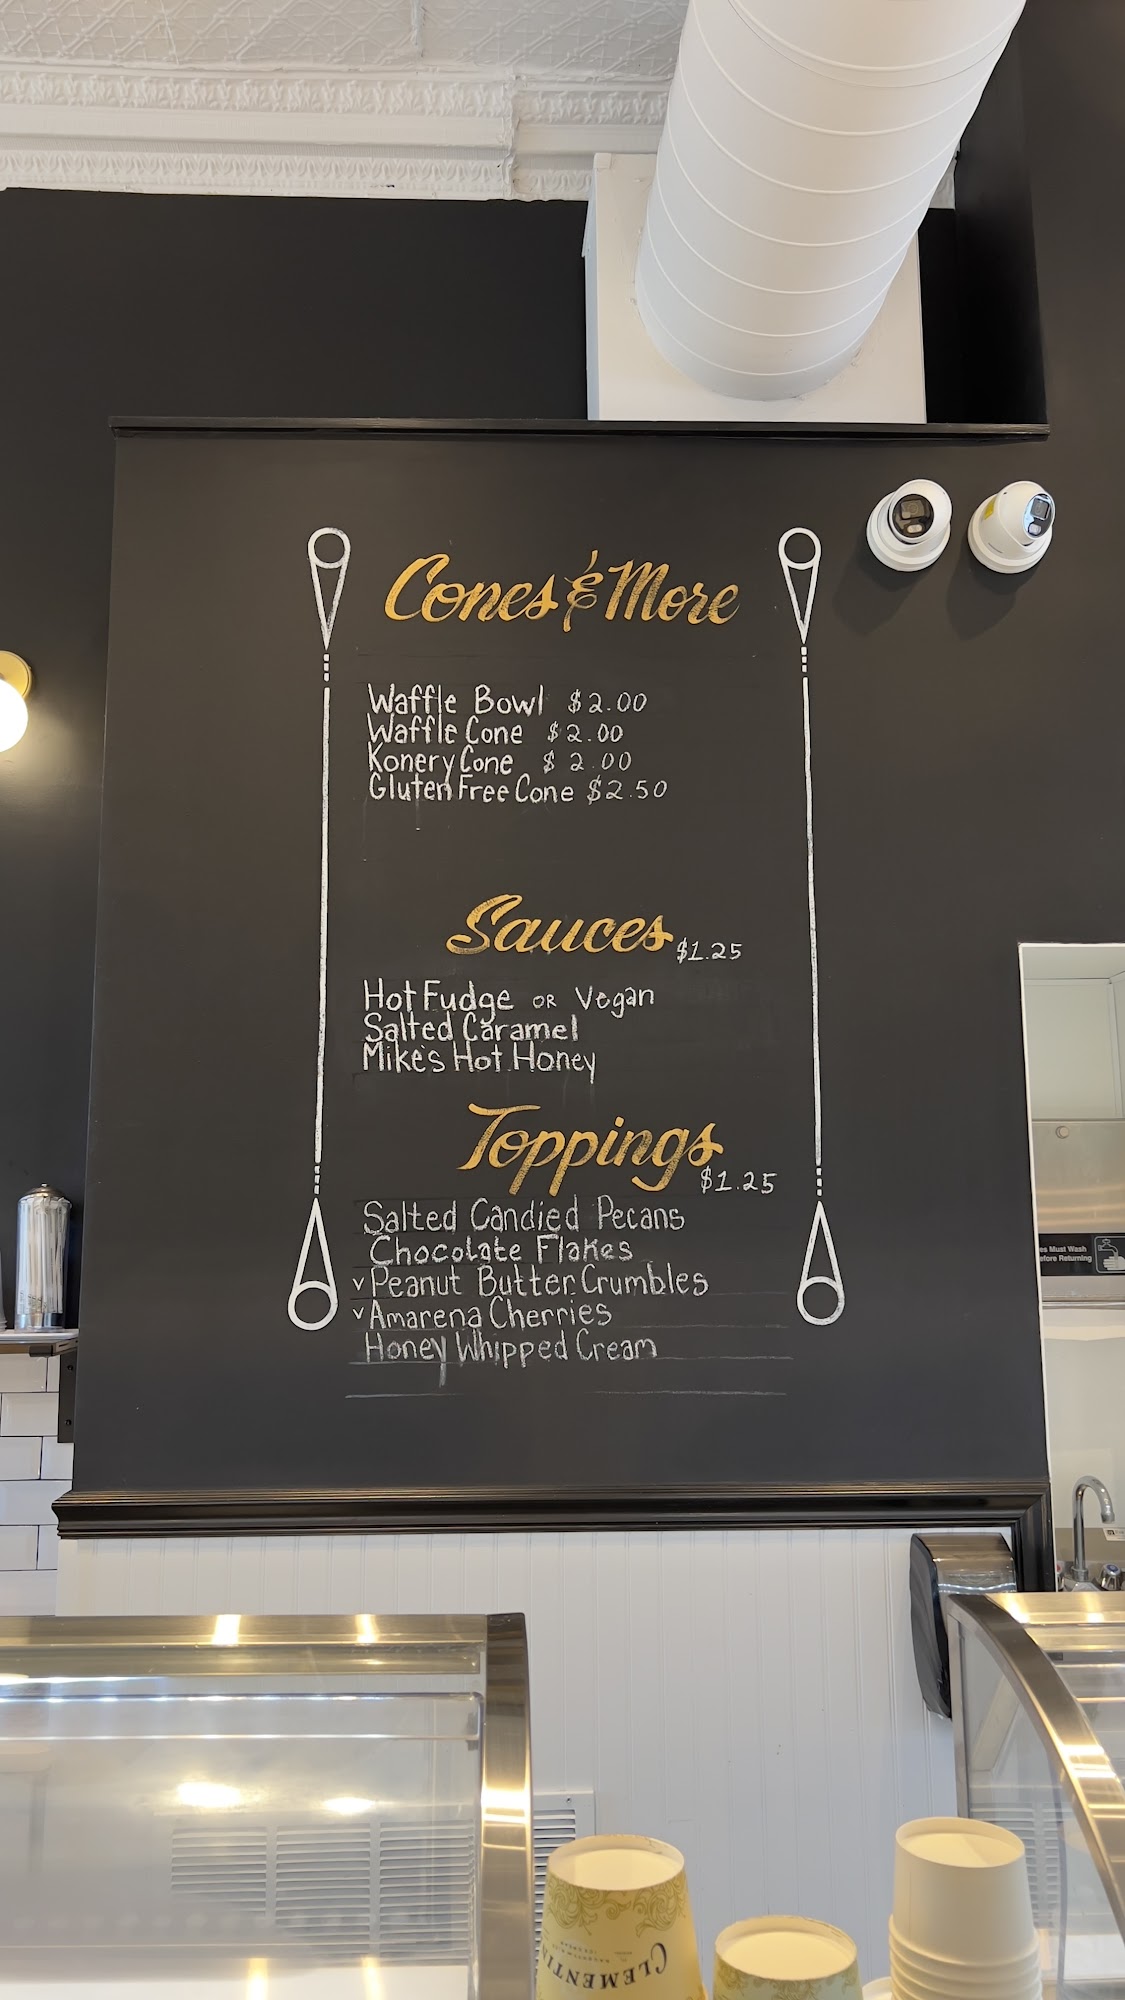 Cones & More
Waffle Bowl $2.00
Waffle Cone $2.00
Konery Cone $2.00
Gluten Free Cone $2.50
Sauces $1.25
Hot Fudge OR Vegan
Salted Caramel
Mike's Hot Honey
Toppings $1.25
Salted Candied Pecans
Chocolate Flakes
v Peanut Butter Crumbles
v Amarena Cherries
Honey Whipped Cream
es Must Wash
efore Returning
CLEMENTIN